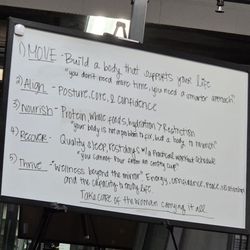 1) MOVE - Build a body that supports your life
"you don't need more time, you need a smarter approach"
2) Align - Posture, Core, & Confidence
3) Nourish - Protein, whole foods, hydration > Restriction
"your body is not a problem to fix, but a body to nourish"
4) Recover - Quality sleep, rest days & a practical workout schedule
"you cannot pour from an empty cup"
5) Thrive - "Wellness beyond the mirror" Energy, confidence,
and the capacity to enjoy life
Take care of the woman carrying it all